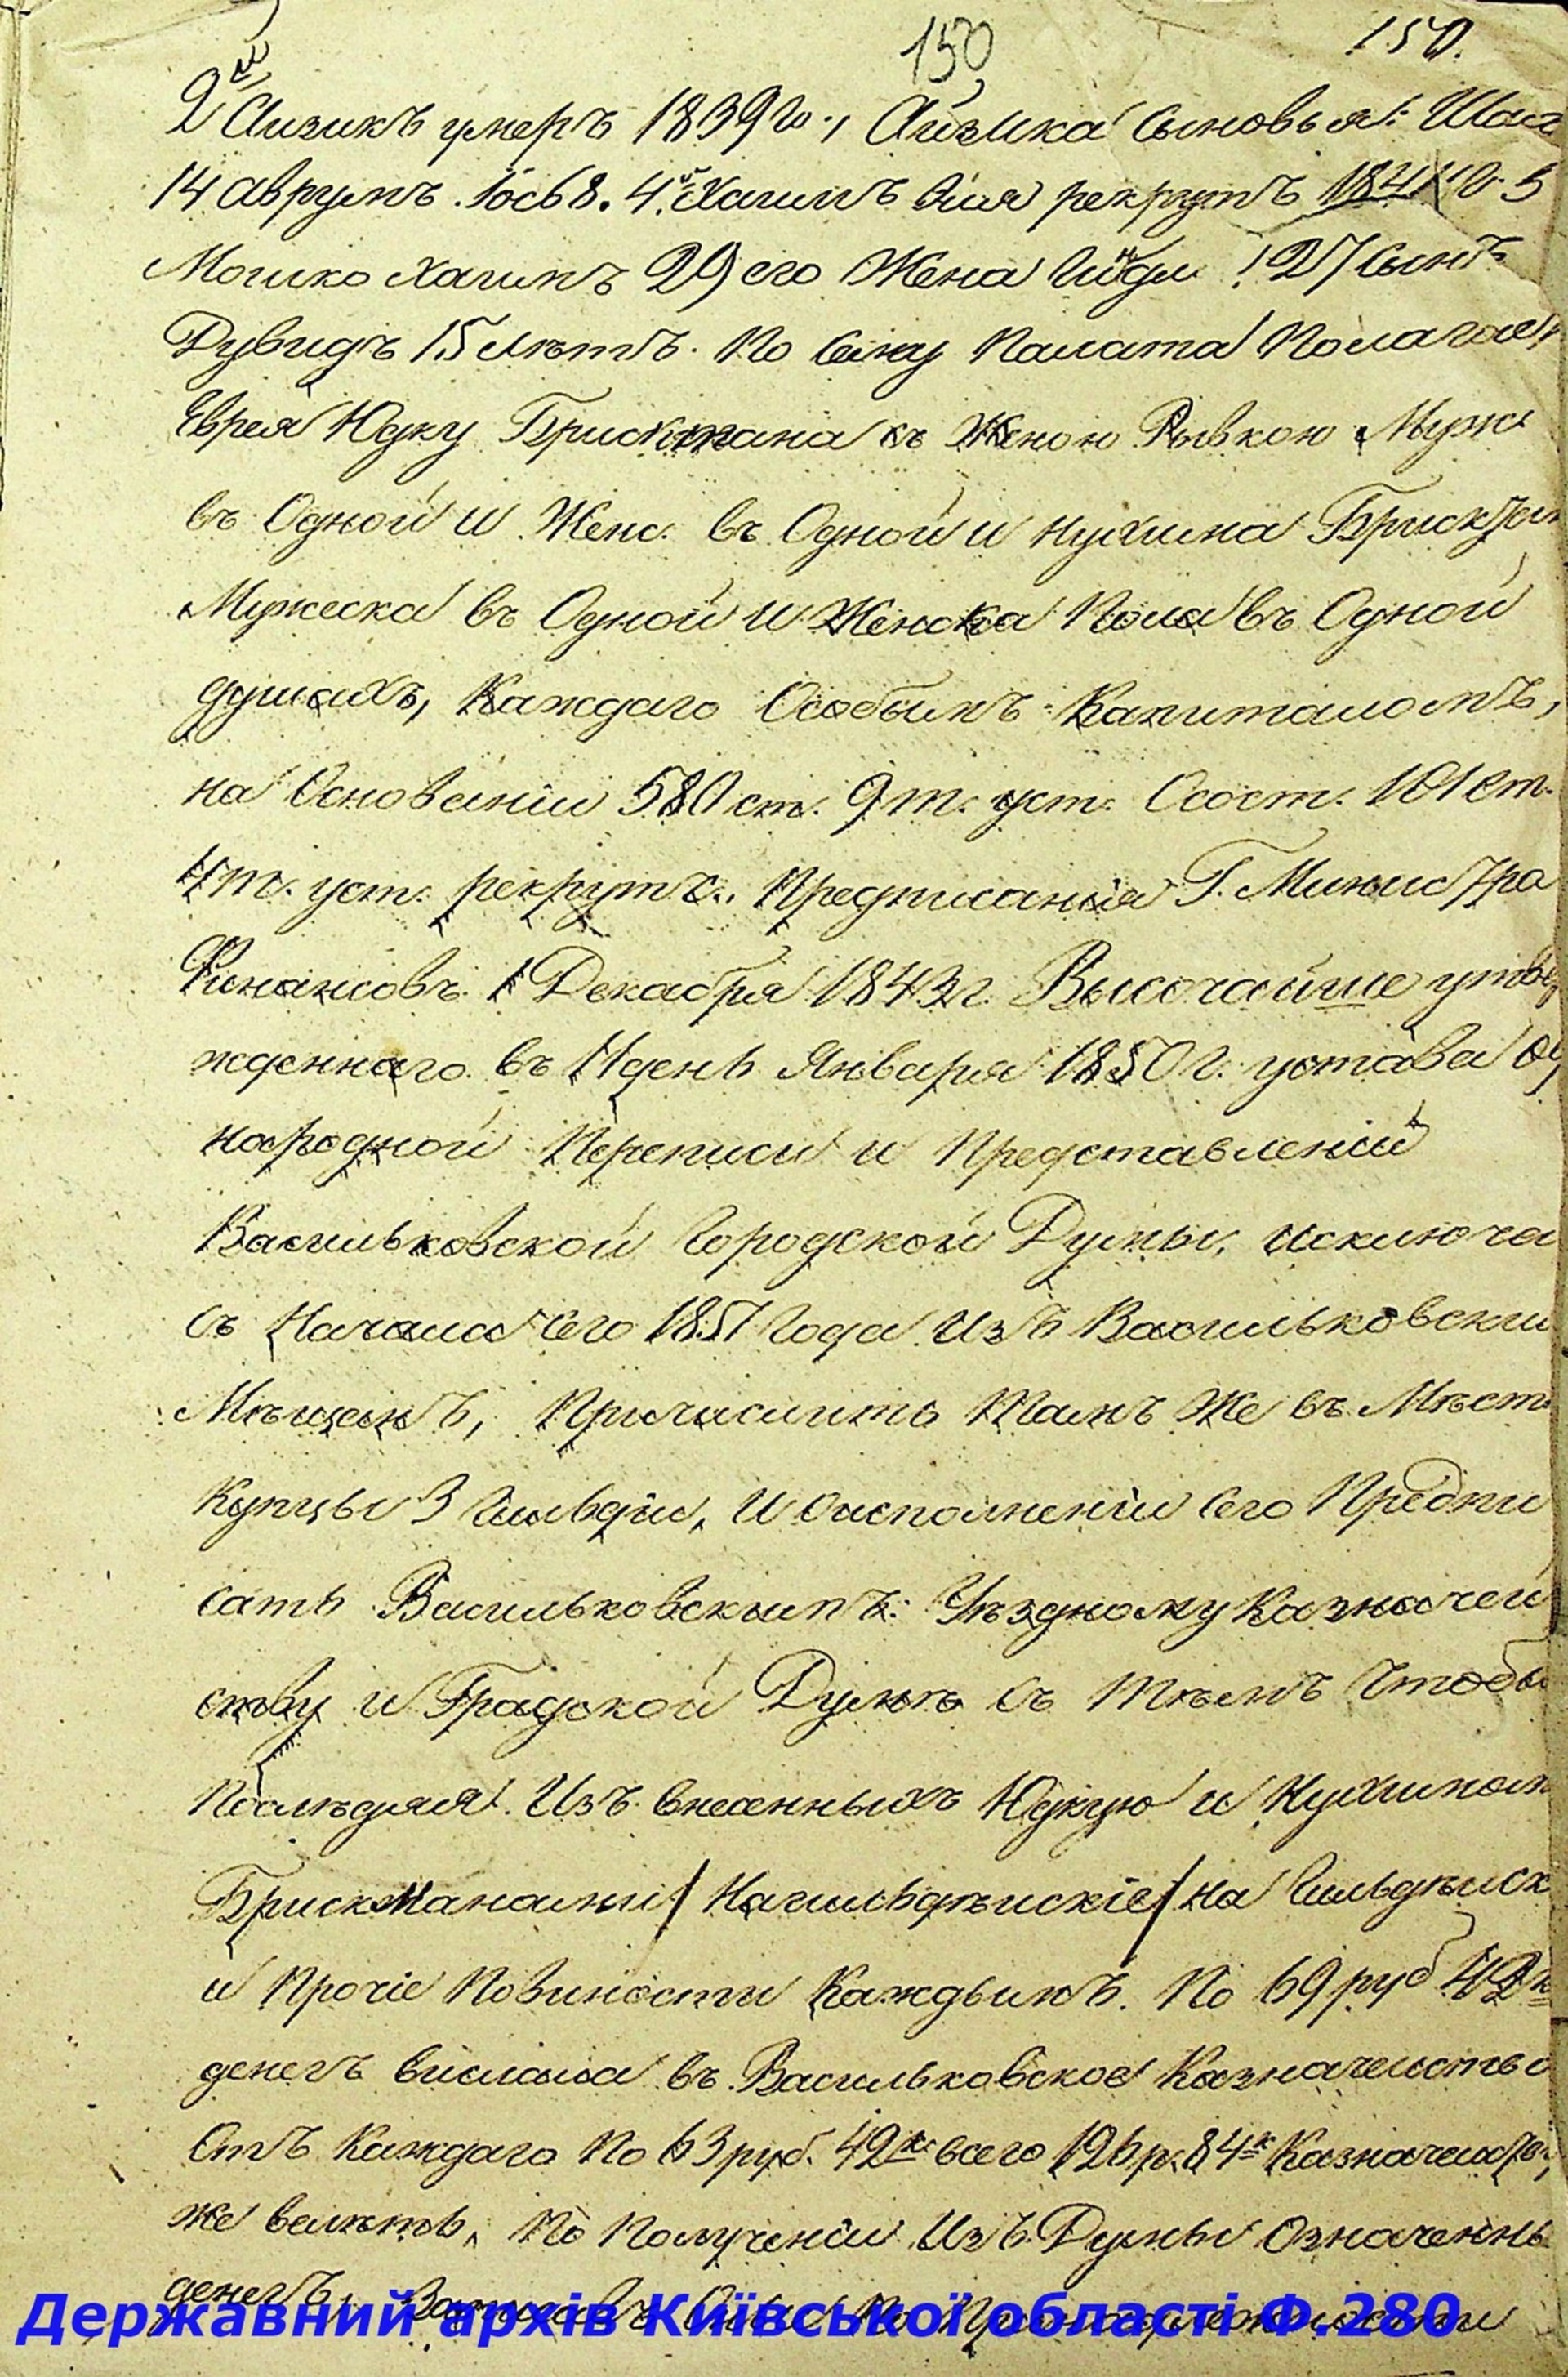 150 150.
2й Аизикъ умеръ 1839 го., Аизика сыновья:
14 Аврумъ. Іось 8. 4й Хаимъ рекрутъ 1841 го. 5
Мошко Хаимъ 29 его Жена 27 Сынъ
Дувидъ 15 лѣтъ. По сему Палата Полагае
Еврея Юдку Брискмана съ Женою Рывкою Муж
въ Одной и Женс. въ Одной и Нухима Брискма
Мужеска въ Одной и Женска Пола въ Одной
душахъ, Каждаго Особымъ Капиталомъ,
на Основаніи 580 ст. 9 т. уст. Осост. 101 ст.
4 т. уст. рекрутс. Предписанія Г. Министра
Финансовъ 1 Декабря 1843 г. Высочайше утвер
жденнаго въ 11 день Января 1850 г. устава о
народной Переписи и Представленіи
Васильковской Городской Думы, исключа
съ Начала сего 1851 Года Изъ Васильковски
Мѣщанъ, Причислить Тамъ Же въ Мѣст
Купцы 3 Гильдіи, И о исполненіи Сего Предпи
сать Васильковскимъ: Уѣздному Казначей
ству и Градской Думѣ съ Тѣмъ Чтобы
Послѣдняя Изъ внесенныхъ Юдкую и Нухимом
Брискманами / Нагильдѣискіе / На Гильдѣиск
и Прочіе Повиности Каждымъ По 69 руб 42 к
денегъ выслала въ Васильковское Казначейство
Отъ Каждаго По 63 руб. 42 к всего 126 р. 84 к Казначейству
же велѣть, По Полученіи Изъ Думы Означенны
денегъ, По Принадлежности
Державний архів Київської області Ф.280